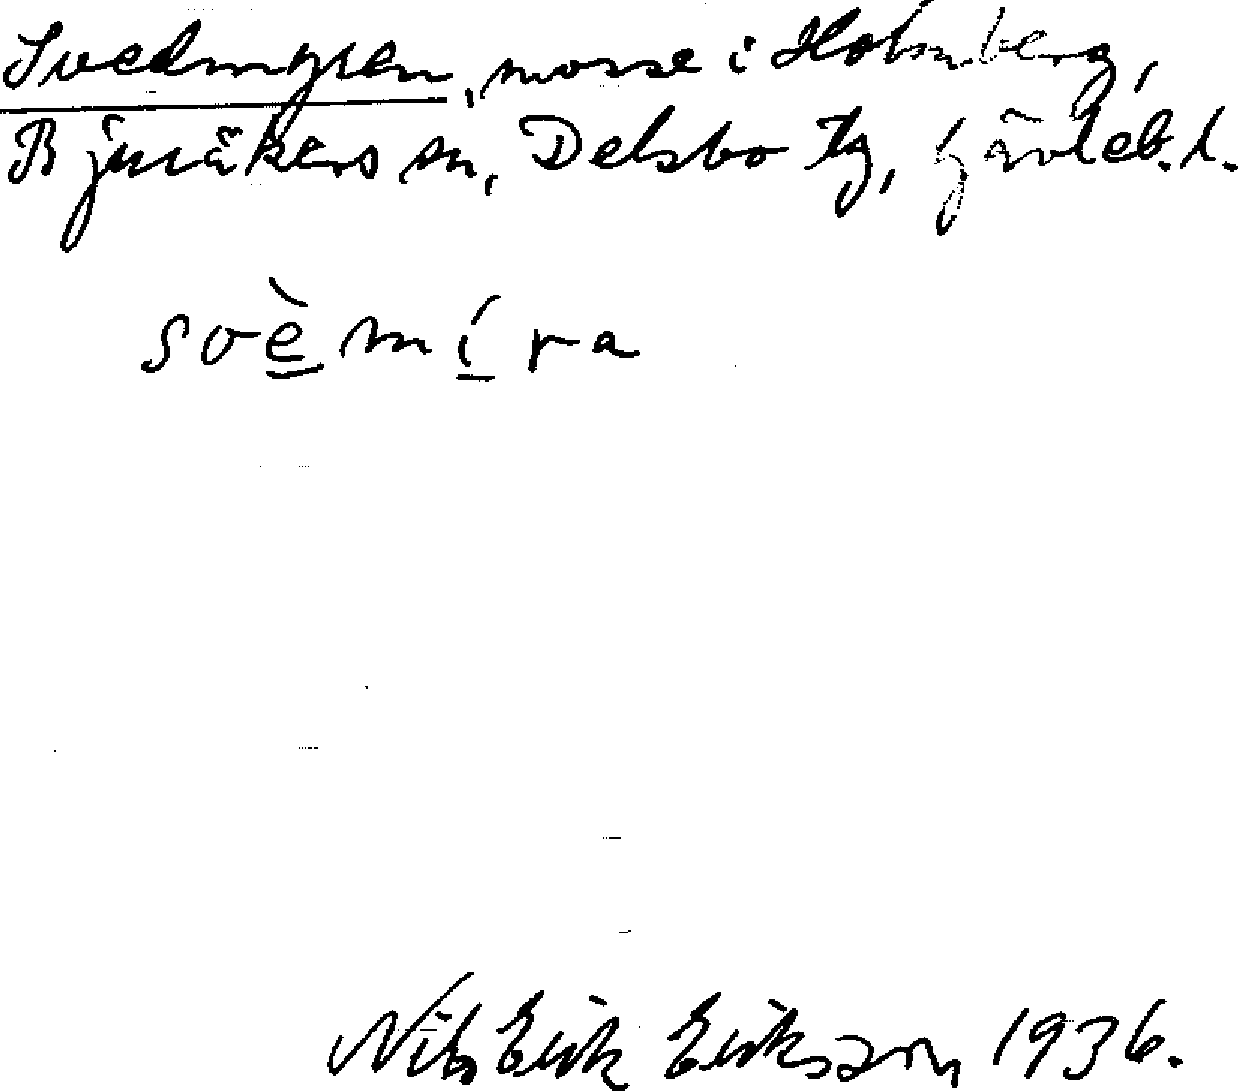 Svedmyren, mosse i Holmberg,
Bjuråkers sn, Delsbo tg, Gävleb. l.
svèmíra
Nils Erik Eriksson 1936.